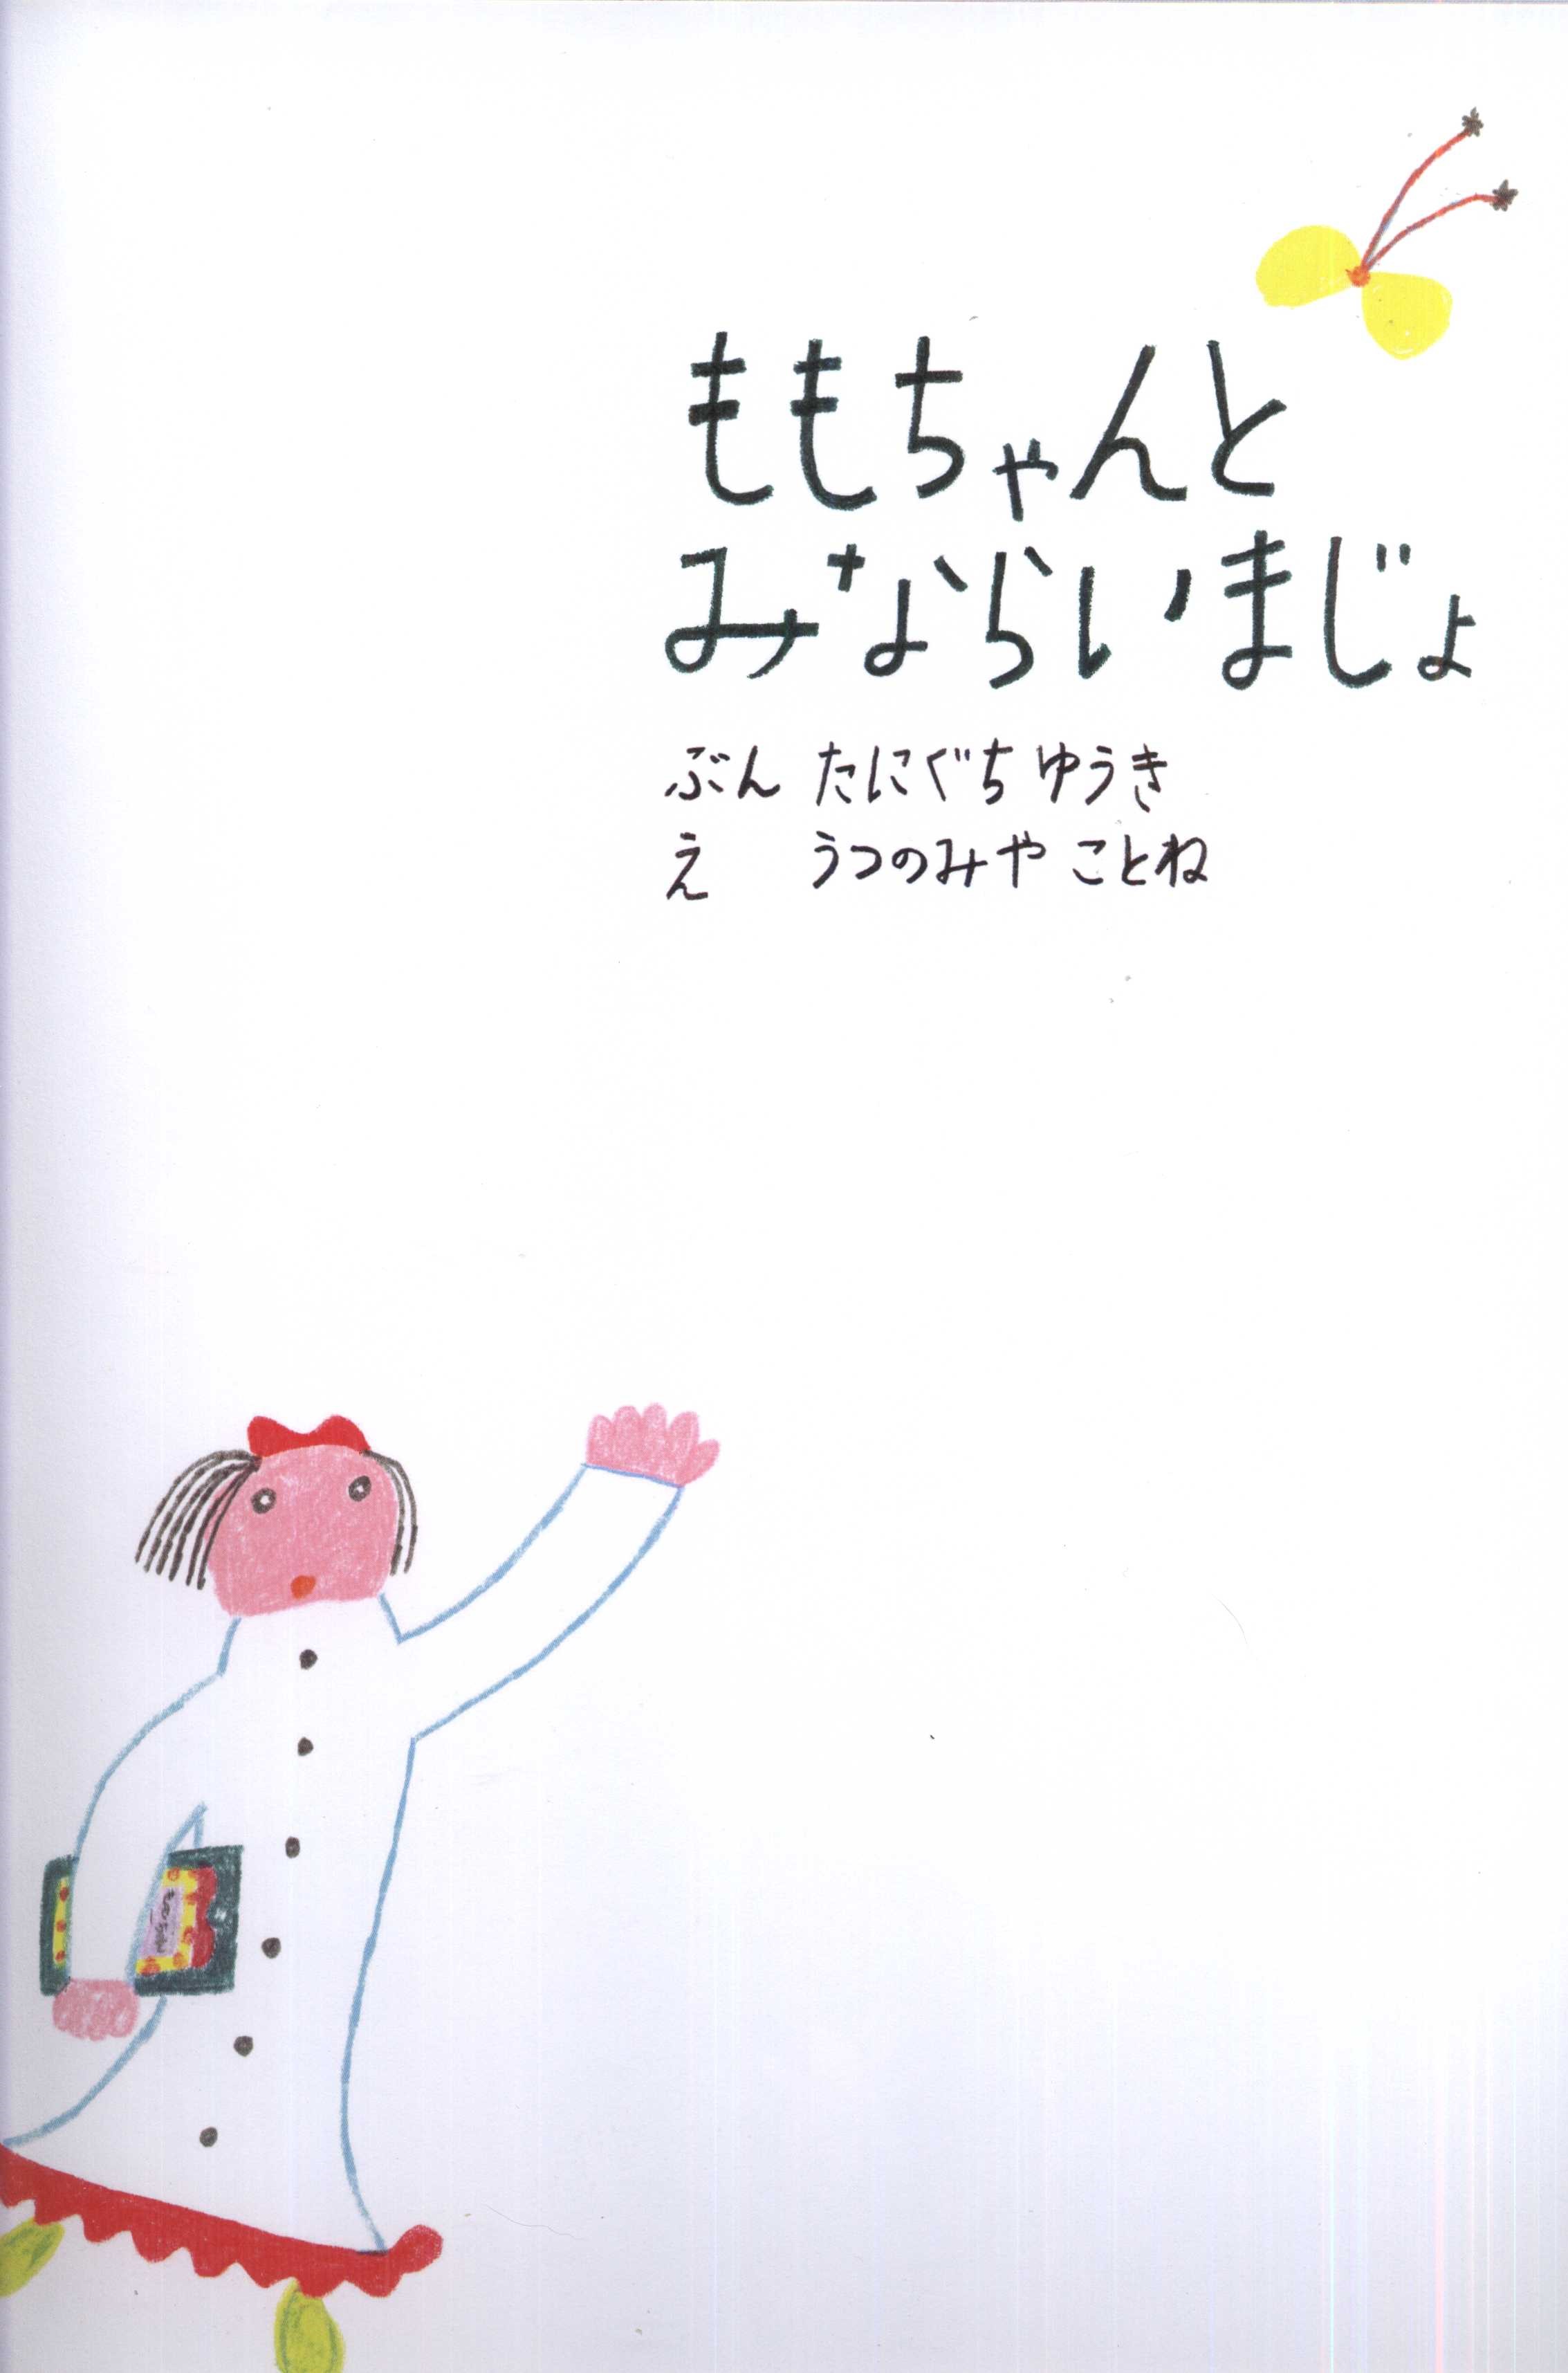 ももちゃんと
みならいまじょ
ぶん たにぐち ゆうき
え うつのみや ことね